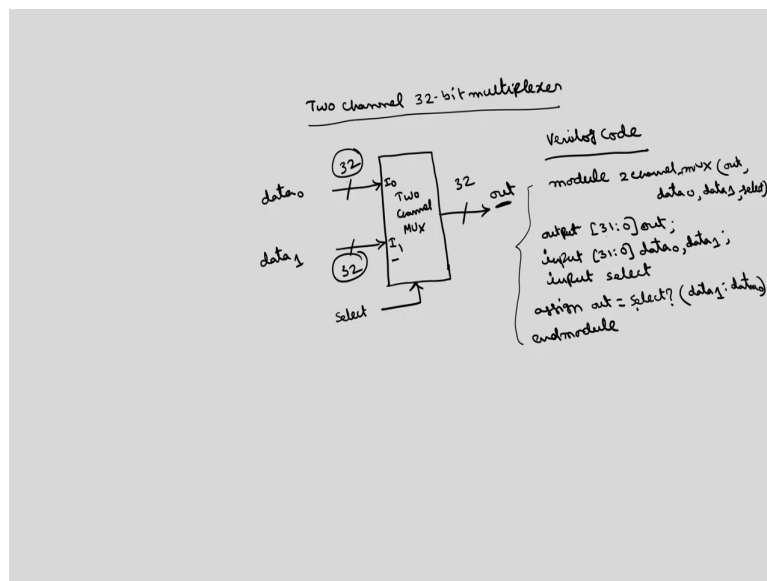 Two channel 32-bit multiplexer
32
data0
I0
Two
Channel
MUX
32
out
data1
I1
32
select
Verilog Code
module 2channel_mux (out,
data0, data1, select)
output [31:0] out;
input [31:0] data0, data1;
input select
assign out = select? (data1 : data0)
endmodule